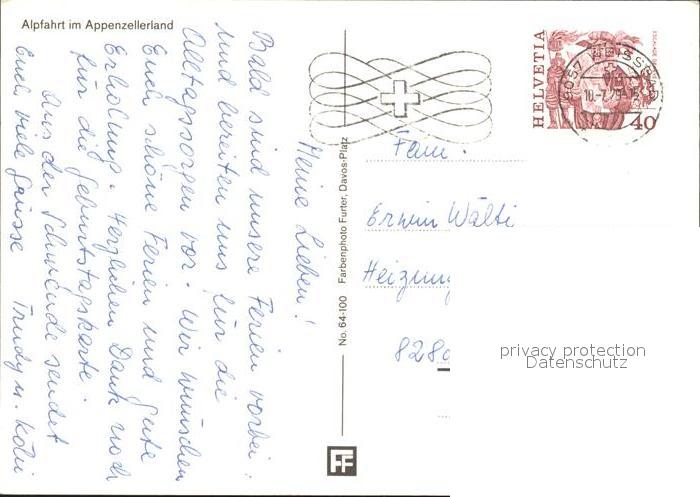 Alpfahrt im Appenzellerland
Meine Lieben!
Bald sind unsere Ferien vorbei
und bereiten uns für die
Alltagssorgen vor. Wir wünschen
Euch schöne Ferien und gute
Erholung. Herzlichen Dank noch
für die Geburtstagskarte.
Aus der Schwende sendet
Euch viele Grüsse Trudy u.
No. 64-100 Farbenphoto Furter, Davos-Platz
FF
HELVETIA
40
9057 WEISSBAD
10.-7.79-15
Fam.
Erwin Wälti
Heizung
828
privacy protection
Datenschutz